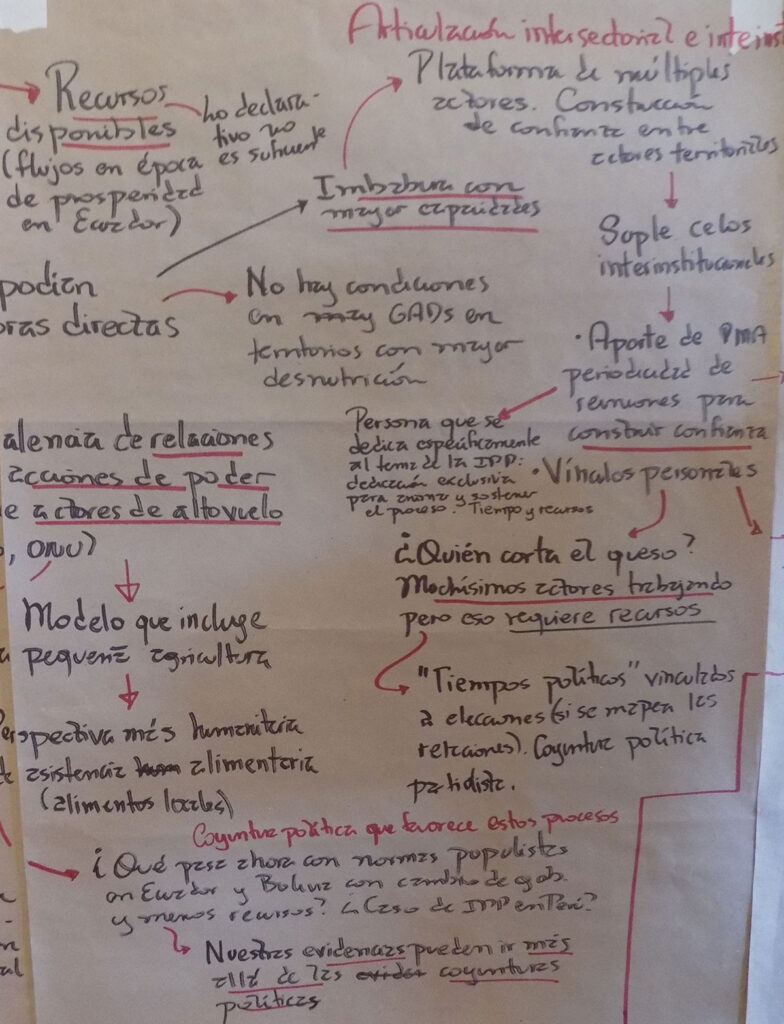 Articulación intersectorial e interinst
Recursos
disponibles
(flujos en época
de prosperidad
en Ecuador)
lo declara-
tivo no
es suficiente
Plataforma de múltiples
actores. Construcción
de confianza entre
actores territoriales
Imbabura con
mayor capacidades
Suple celos
interinstitucionales
podían
ras directas
No hay condiciones
en muy GADs en
territorios con mayor
desnutrición
· Aporte de PMA
periodicidad de
reuniones para
construir confianza
Persona que se
dedica específicamente
al tema de la IPP:
dedicación exclusiva
para animar y sostener
el proceso. Tiempo y recursos
· Vínculos personales
alencia de relaciones
acciones de poder
e actores de alto vuelo
, ONU)
Modelo que incluye
pequeña agricultura
erspectiva más humanitaria
asistencia hum alimentaria
(alimentos locales)
¿Quién corta el queso?
Muchísimos actores trabajando
pero eso requiere recursos
"Tiempos políticos" vinculados
a elecciones (si se mapea las
relaciones). Coyuntura política
partidista.
Coyuntura política que favorece estos procesos
¿Qué pasa ahora con normas populistas
en Ecuador y Bolivia con cambio de gob.
y menos recursos? ¿Caso de IPP en Perú?
Nuestras evidencias pueden ir más
allá de las eviden coyunturas
políticas
al